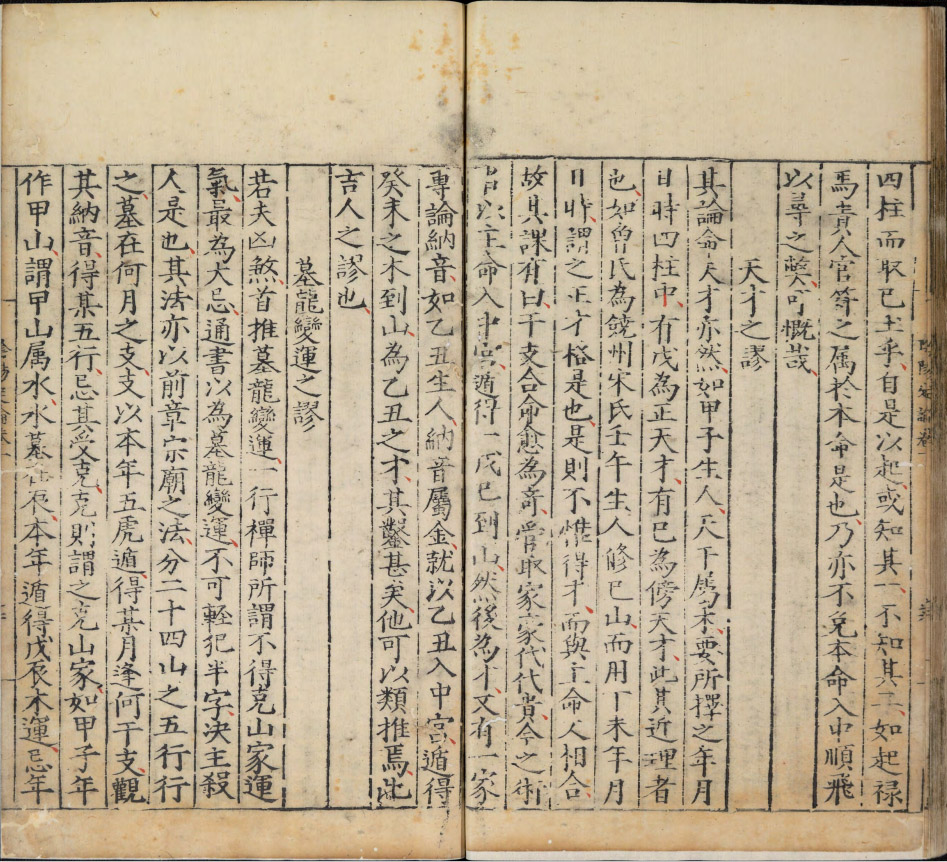 四柱而取巳土乎自是以起或知其一不知其二如起祿
馬貴人官等之属於本命是也乃亦不克本命入中順飛
以尋之獘可慨哉
天才之謬
其論命天才亦然如甲子生人天干属木要所擇之年月
日時四柱中有戊為正天才有巳為傍天才此其近理者
也如曾氏為饒州宋氏壬午生人修巳山而用丁未年月
日時謂之正才格是也是則不惟得才而與主命人相合
故其課有曰干支合命愈為竒管取家家代代貴今之術
者以主命入中宮遁得一戊巳到山然後為才又有一家
專論納音如乙丑生人納音屬金就以乙丑入中宮遁得
癸未之木到山為乙丑之才其鑿甚矣他可以類推焉此
吉人之謬也
墓龍變運之謬
若夫凶煞首推墓龍變運一行禪師所謂不得克山家運
氣最為大忌通書以為墓龍變運不可輕犯半字决主殺
人是也其法亦以前章宗廟之法分二十四山之五行行
之墓在何月之支支以本年五虎遁得某月逢何干支觀
其納音得某五行忌其受克克則謂之克山家如甲子年
作甲山謂甲山属水水墓在辰本年遁得戊辰木運忌年